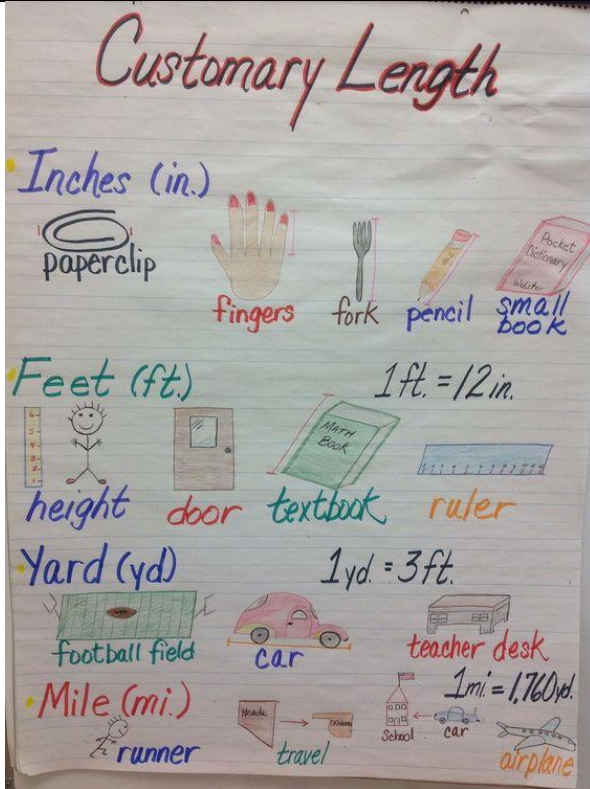 Customary Length
Inches (in.)
paperclip
fingers
fork
pencil
Pocket
Dictionary
Webster
small
book
Feet (ft.)
1 ft. = 12 in.
6
5
4
3
2
1
MATH
BOOK
height
door
textbook
ruler
Yard (yd)
1 yd. = 3 ft.
football field
car
teacher desk
Mile (mi.)
1 mi. = 1,760 yd.
runner
Nevada
Oklahoma
travel
School
car
airplane